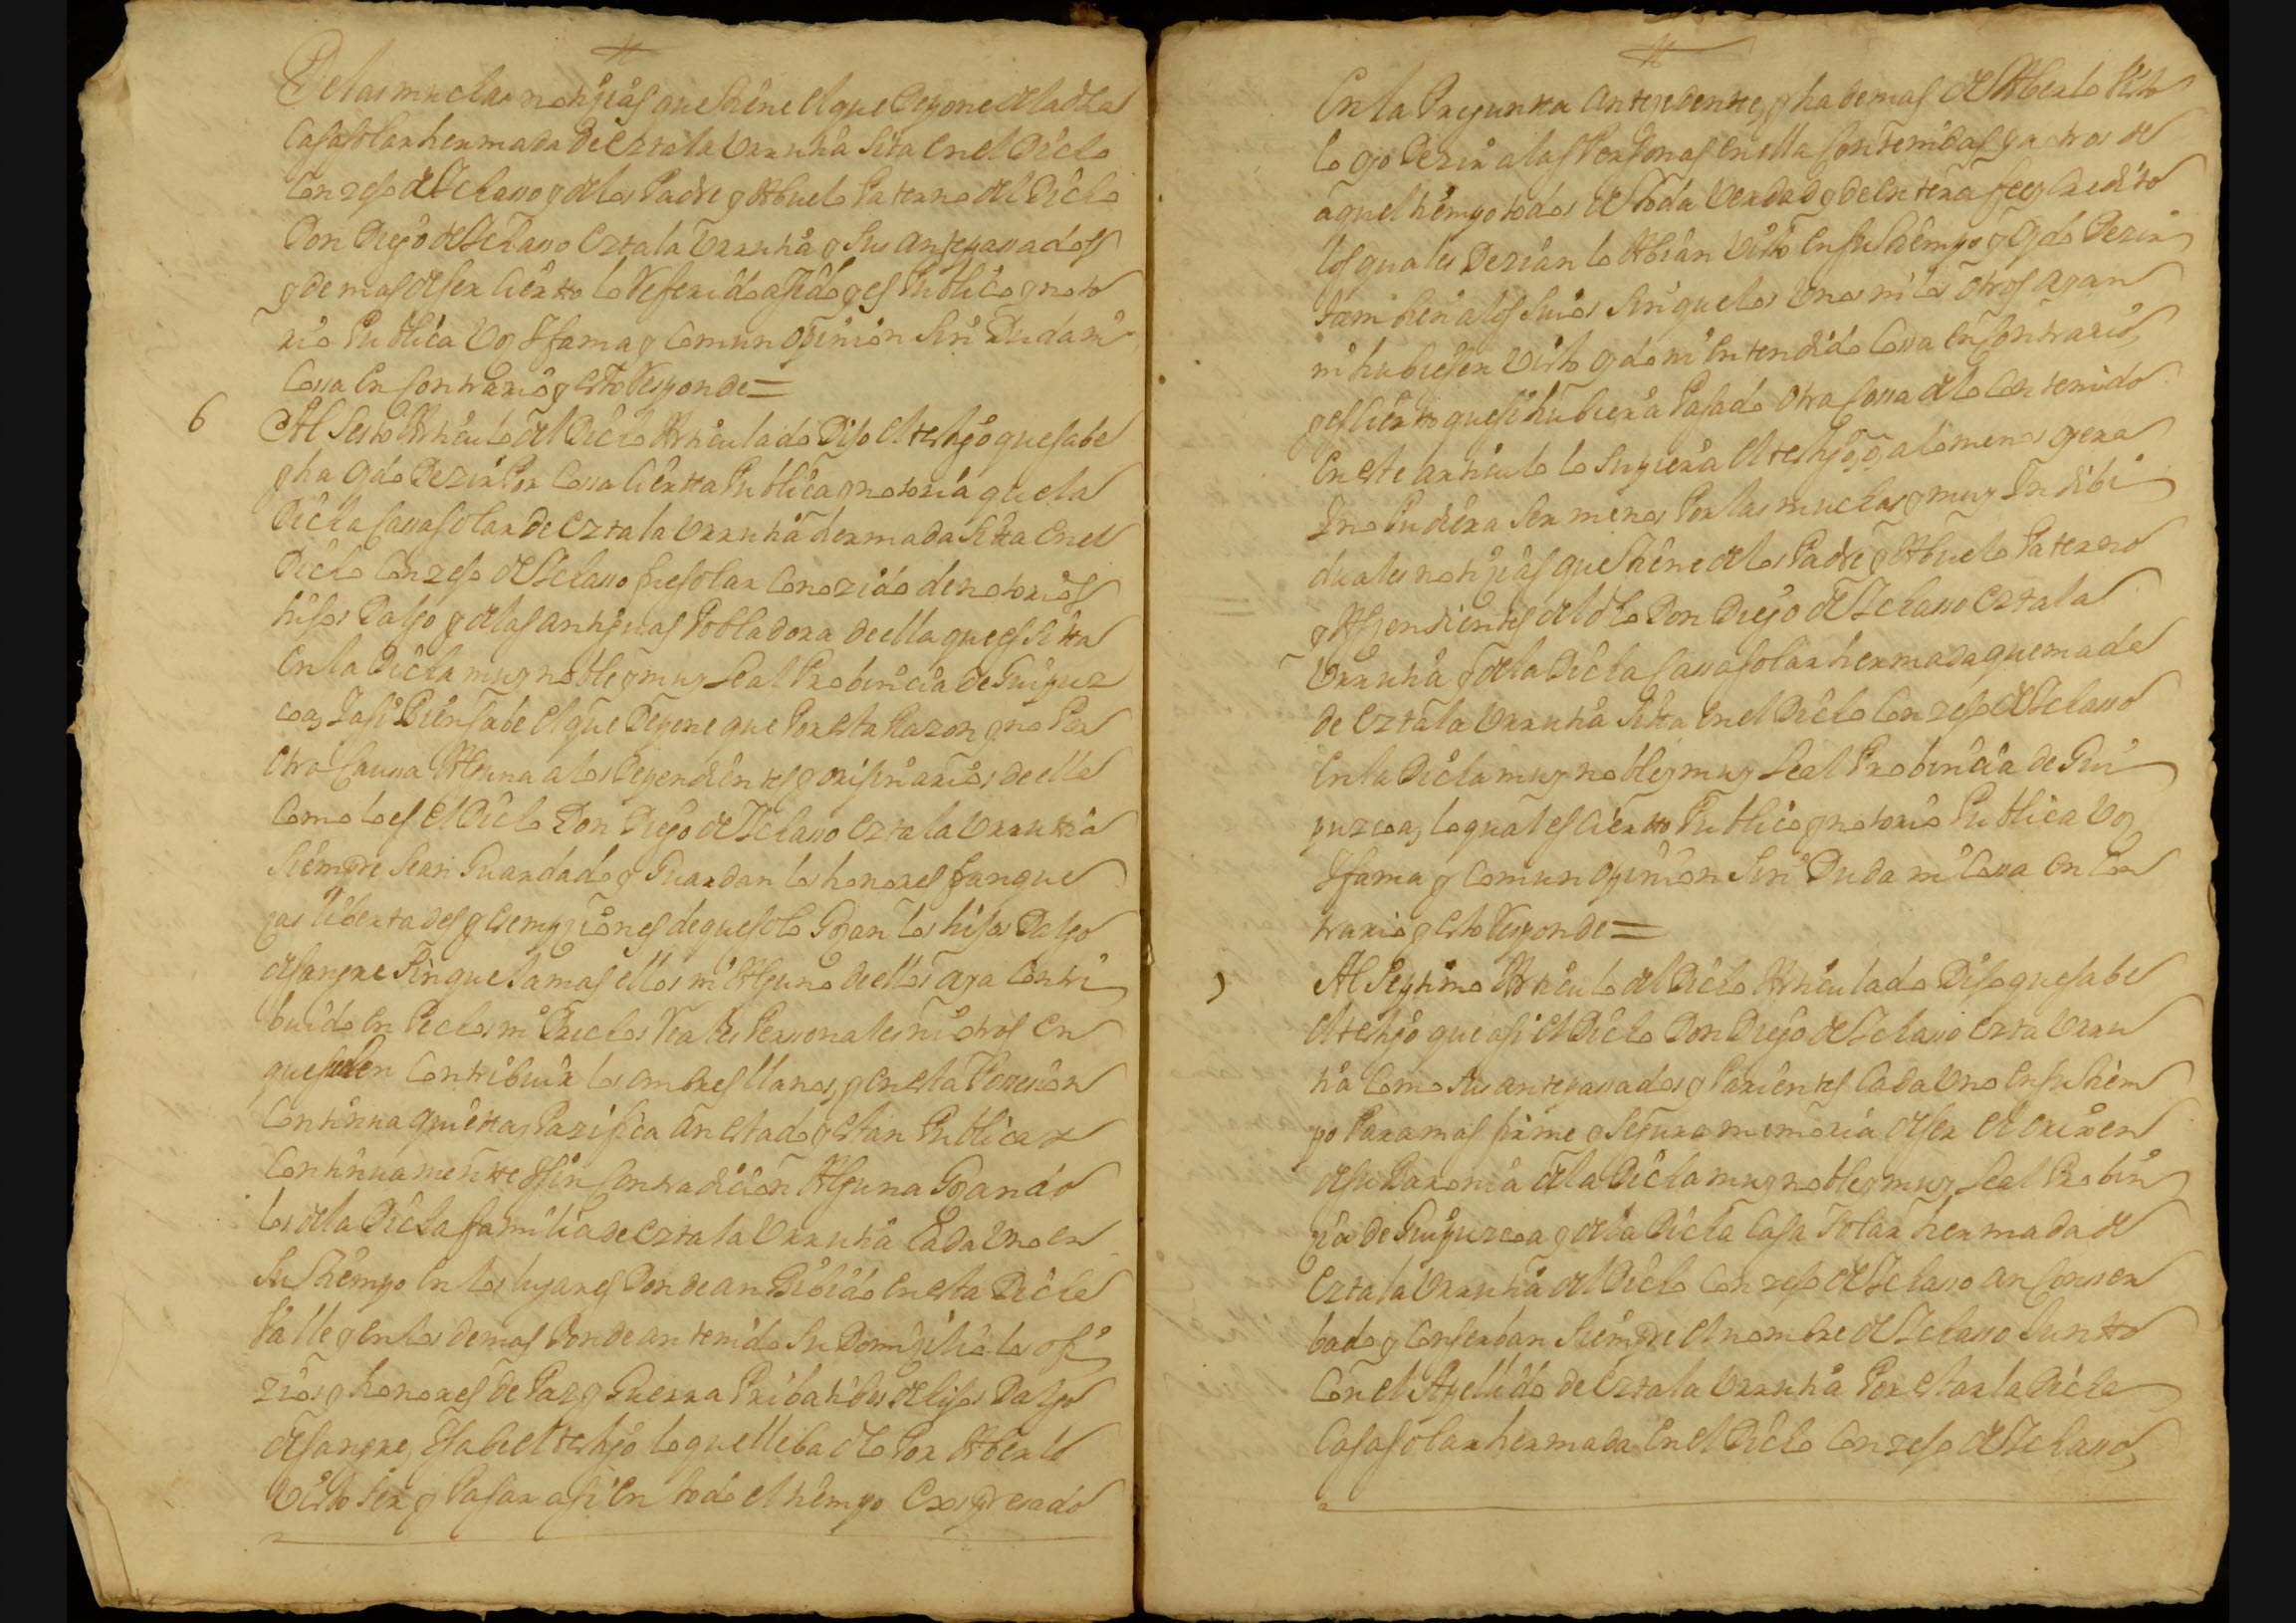 De las muchas notiçias que tiene el que depone de la dha
Casa solar hermada de Eztala Urrutia sita en el dicho
Conzejo de Ichasso y de los Padre y Abuelo Paterno del dicho
Don Diego de Ichasso Eztala Urrutia y sus antepassados
y demas de ser cierto lo referido a sido y es Publico y noto
rio Publica Voz y fama y Comun opinion sin Duda ni
Cossa en contrario y esto responde =
6 Al sesto Articulo del dicho Articulado Dijo el testigo que sabe
y ha oydo Dezir Por Cossa Cierta Publica y notoria que la
dicha Cassa solar de Eztala Urrutia hermada sita en el
dicho Conzejo de Ichasso fue solar Conozido de notorios
hijos Dalgo y de las antiguas Pobladora de ella que es sita
en la dicha muy noble y muy Leal Probincia de Guipuz
coa, y asi Bien sabe el que Depone que Por esta Razon y no Por
otra Caussa Alguna a los Dependientes y orijinarios de ella
Como lo es el dicho Don Diego de Ichasso Eztala Urrutia
siempre se an Guardado y Guardan los honores franque
zas libertades y exempçiones de que solo Gozan los hijos Dalgo
de sangre sin que Jamas ellos ni Alguno de ellos aya Contri
buido en Pechos ni Drechos Reales Personales ni otros en
que suelen Contribuir los ombres llanos, y en esta Possesion
Continua quieta y Pazifica an estado y estan Publica y
Continuamente y sin Contradicion Alguna Gozando
los de la dicha familia de Eztala Urrutia Cada Uno en
su tiempo en los lugares Donde an Bibido en esta Dicha
Valle y en los demas Donde an tenido su Domiçilio los ofi
zios y honores de Paz y Guerra Pribatibos de hijos Dalgo
de sangre, y sabe el testigo lo que lleba dho Por Aberlo
Visto ser y Pasar asi en todo el tiempo Expresado
En la Pregunta Anteçedente, y ha demas de Aberlo Visto
lo oyo Dezir a las Personas en ella Contenidas y a otros de
aquel tiempo todos de toda Verdad y de entera fee y Credito
los quales Dezian lo Abian Visto en su tiempo y oydo Dezir
tambien a los suios sin que los Unos ni los otros ayan
ni hubiesen Visto oydo ni Entendido Cossa en Contrario,
y es Cierto que si hubiera Pasado otra Cossa de lo Contenido
en este articulo lo supiera el testigo, o, a lo menos oyera
y no Pudiera ser menos Por las muchas y muy Indibi
duales notiçias que tiene de los Padre y Abuelo Paterno
y Asçendientes del dho Don Diego de Ichasso Eztala
Urrutia y de la Dicha Cassa solar hermada quemada
de Eztala Urrutia sita en el Dicho Conzejo de Ichasso
en la Dicha muy noble y muy Leal Probincia de Gui
puzcoa, lo qual es Cierto Publico y notorio Publica Voz
y fama y Comun opinion sin Duda ni Cossa en Con
trario y esto Responde =
7 Al Septimo Articulo del Dicho Articulado Dijo que sabe
el testigo que asi el Dicho Don Diego de Ichasso Ezta Urru
tia Como sus antepassados y Parientes Cada Uno en su tiem
po Para mas firme y segura memoria de ser el orijen
de su Baronia de la Dicha muy noble y muy Leal Probin
çia de Guipuzcoa y de la Dicha Casa solar hermada de
Eztala Urrutia del Dicho Conzejo de Ichasso an Conser
bado y Conserban siempre el nombre de Ichasso Junto
Con el Apellido de Eztala Urrutia Por estar la Dicha
Casa solar hermada en el Dicho Conzejo de Ichasso,